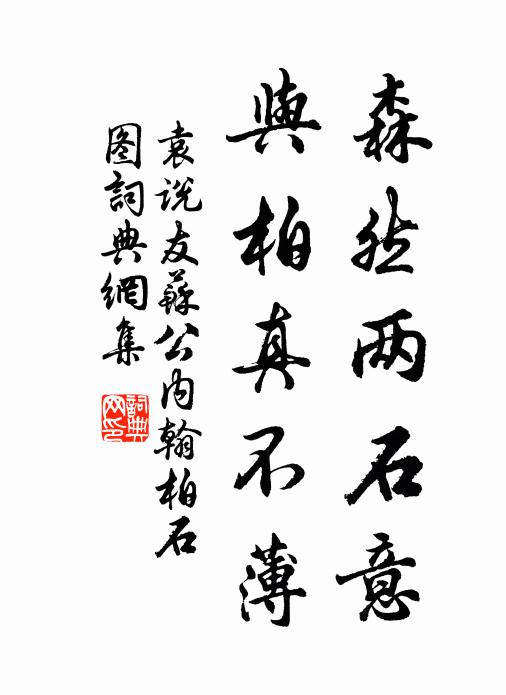 森然两石意
與柏真不薄
袁说友蘇公内翰柏石
图詞典網集
詞典网印